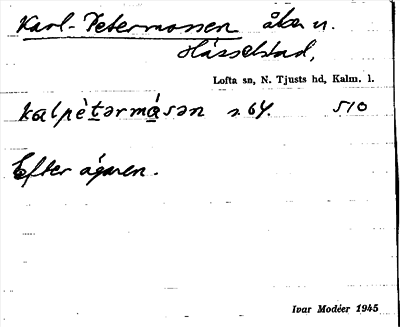 Karl-Petermossen åker u.
Hässelstad,
Lofta sn, N. Tjusts hd, Kalm. l.
kalpètərmåsən s. 64. 510
Efter ägaren.
Ivar Modéer 1945